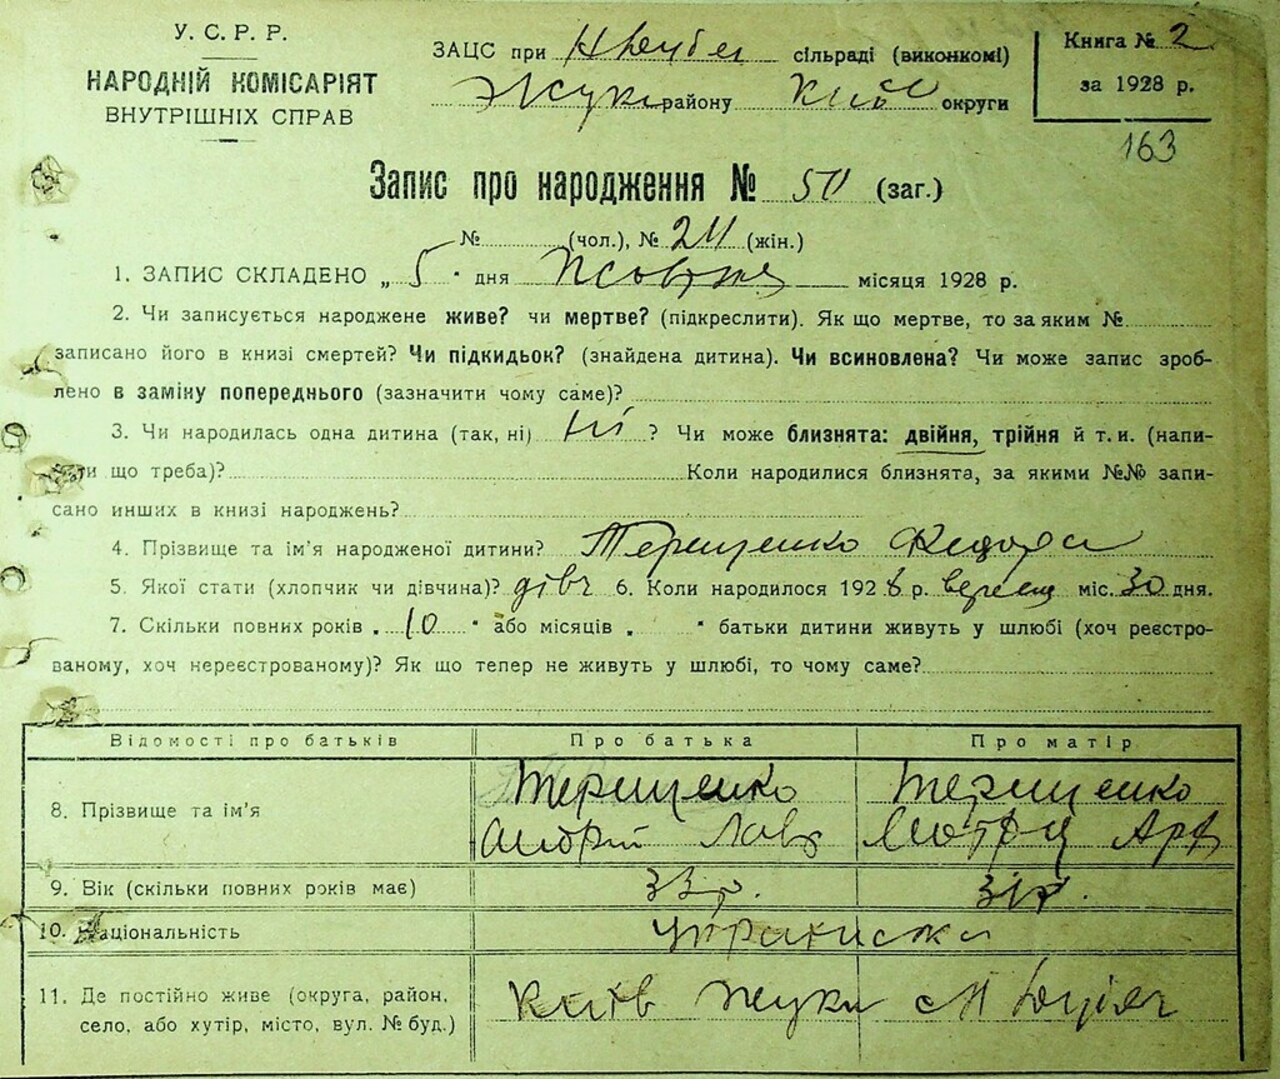 У. С. Р. Р.
НАРОДНІЙ КОМІСАРІЯТ
ВНУТРІШНІХ СПРАВ
ЗАЦС при сільраді (виконкомі)
району округи
Книга № 2
за 1928 р.
163
Запис про народження № 50 (заг.)
№ (чол.), № 24 (жін.)
1. ЗАПИС СКЛАДЕНО „ 5 " дня місяця 1928 р.
2. Чи записується народжене живе? чи мертве? (підкреслити). Як що мертве, то за яким №
записано його в книзі смертей? Чи підкидьок? (знайдена дитина). Чи всиновлена? Чи може запис зроб-
лено в заміну попереднього (зазначити чому саме)?
3. Чи народилась одна дитина (так, ні) ні ? Чи може близнята: двійня, трійня й т. и. (напи-
ти що треба)? Коли народилися близнята, за якими №№ запи-
сано инших в книзі народжень?
4. Прізвище та ім'я народженої дитини? Терещенко Федора
5. Якої стати (хлопчик чи дівчина)? дівч 6. Коли народилося 1928 р. міс. 30 дня.
7. Скільки повних років „ 10 " або місяців „ " батьки дитини живуть у шлюбі (хоч реєстро-
ваному, хоч нереєстрованому)? Як що тепер не живуть у шлюбі, то чому саме?
Відомості про батьків Про батька Про матір
8. Прізвище та ім'я Терещенко Терещенко
Андрій Лавр Мотря Арт
9. Вік (скільки повних років має) 33 р. 31 р.
10. Національність
11. Де постійно живе (округа, район, Київ
село, або хутір, місто, вул. № буд.)